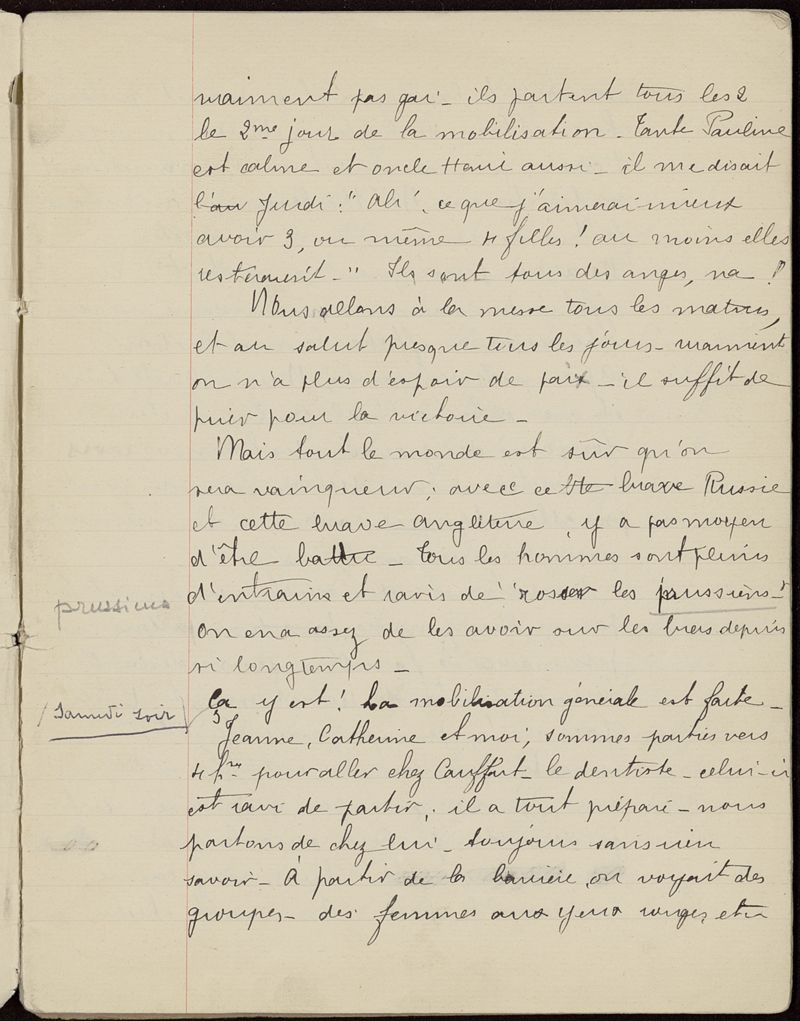 vraiment pas gai – ils partent tous les 2
le 2me jour de la mobilisation – Tante Pauline
est calme et oncle Henri aussi – il me disait
Jeudi : "Ah! ce que j'aimerai mieux
avoir 3, ou même 4 filles ! au moins elles
resteraient –" Ils sont tous des anges, na !
Nous allons à la messe tous les matins,
et au salut presque tous les jours – vraiment
on n'a plus d'espoir de paix – il suffit de
prier pour la victoire –
Mais tout le monde est sûr qu'on
sera vainqueur ; avec cette brave Russie
et cette brave angleterre, y a pas moyen
d'être battu – Tous les hommes sont pleins
d'entrain et ravis de "rosser les prussiens"
prussiens
On en a assez de les avoir sur les bras depuis
si longtemps –
(Samedi soir) Ça y est ! La mobilisation générale est faite –
Jeanne, Catherine et moi, sommes parties vers
4 hres pour aller chez Cauffart – le dentiste – celui-ci
est ravi de partir ; il a tout préparé – nous
partons de chez lui – toujours sans rien
savoir – À partir de la barrière, on voyait des
groupes – des femmes aux yeux rouges, et